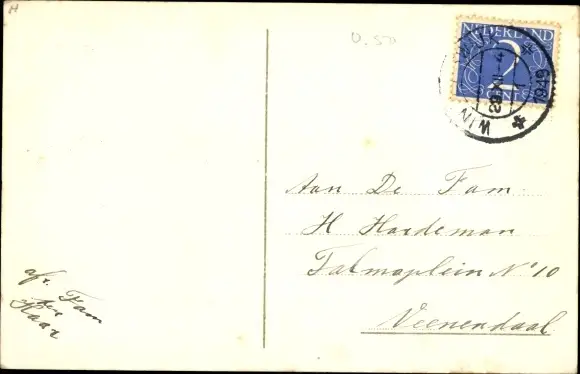 H
0.50
NEDERLAND
2
CENT
1949
Aan De Fam.
H Hardeman
Talmaplein No 10
Veenendaal
afz. Fam
ter
Haar